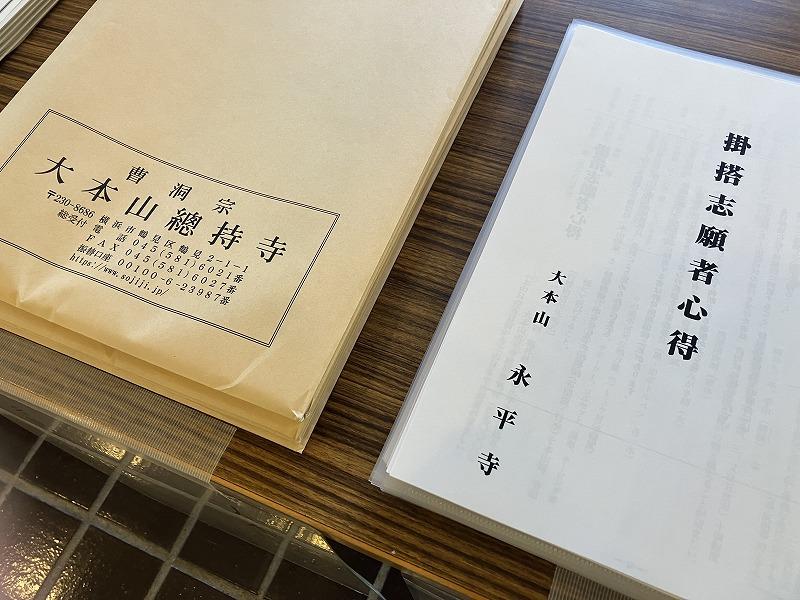 曹洞宗
大本山總持寺
〒230-8686 横浜市鶴見区鶴見2-1-1
総受付 電話 045(581)6021番
FAX 045(581)6027番
振替口座 00100-6-23987番
https://www.sojiji.jp/
掛搭志願者心得
大本山 永平寺